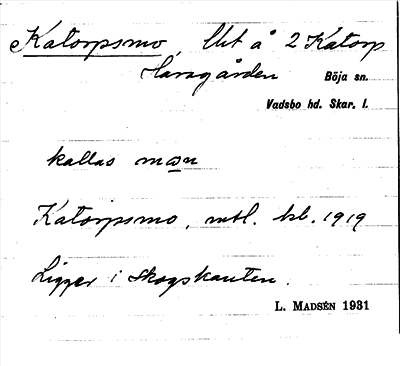 Katorpsmo, Utt å 2 Katorp
Haragården Böja sn.
Vadsbo hd. Skar. l.
kallas moan
Katorpsmo, mtl. bl. 1919
Ligger i Skogskanten.
L. Madsén 1931